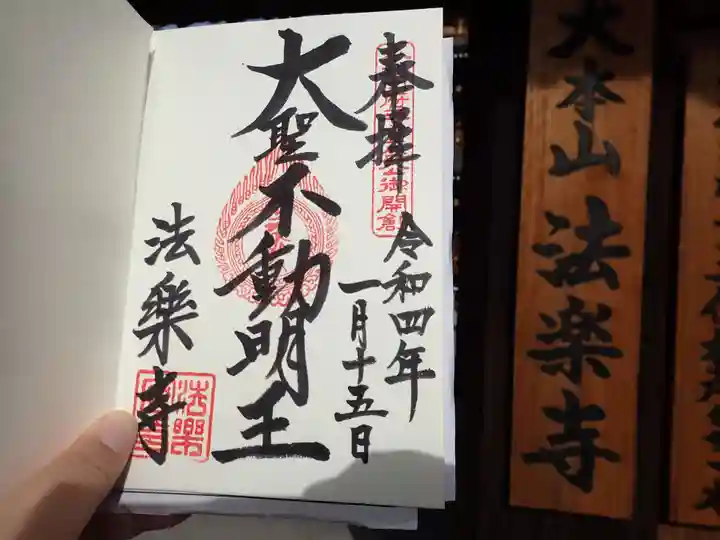 奉拝
御開倉
令和四年
一月十五日
大聖不動明王
法樂寺
法樂
大本山 法楽寺